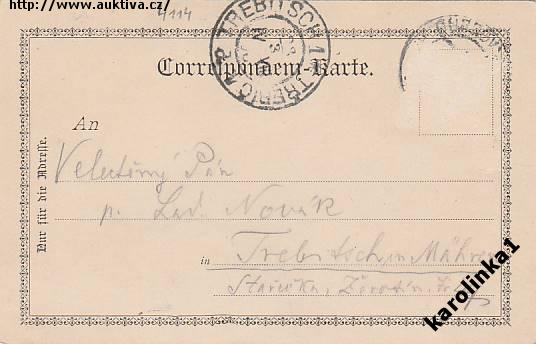 http://www.auktiva.cz/
4/114
TREBITSCH 1
TŘEBÍČ
Correspondenz-Karte.
An
Nur für die Adresse.
Velectěný Pán
p. Lad. Novák
in
Trebitsch in Mähren
karolinka1